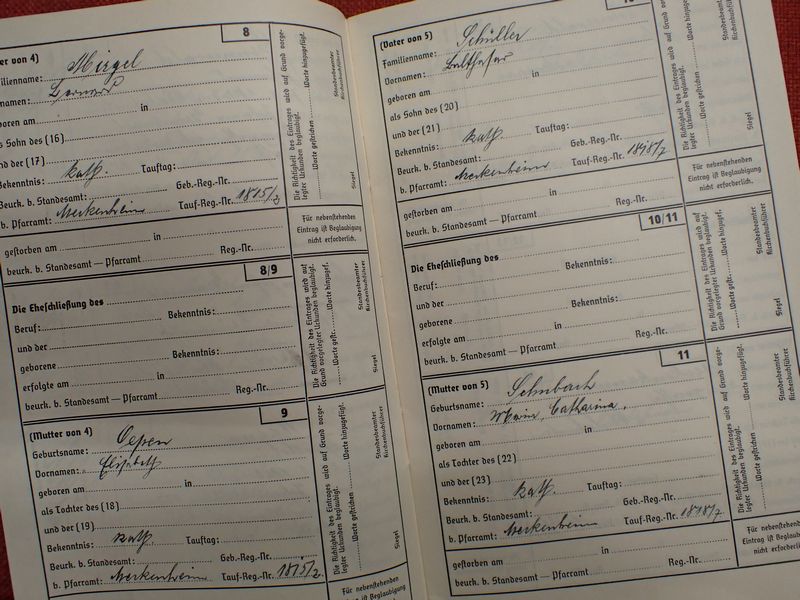 8
er von 4)
ilienname: Mirgel
namen: Bernard
oren am in
s Sohn des (16)
nd der (17)
Bekenntnis: kath. Tauftag:
Beurk. b. Standesamt: Geb.-Reg.-Nr.
b. Pfarramt: Meckenheim Tauf-Reg.-Nr. 1815/2
gestorben am in
beurk. b. Standesamt — Pfarramt Reg.-Nr.
Die Richtigkeit des Eintrages wird auf Grund vorge-
legter Urkunden beglaubigt.
Worte gestrichen Worte hinzugefügt.
Standesbeamter
Kirchenbuchführer
Siegel
Für nebenstehenden
Eintrag ist Beglaubigung
nicht erforderlich.
8/9
Die Eheschließung des
Beruf: Bekenntnis:
und der
geborene Bekenntnis:
erfolgte am in
beurk. b. Standesamt — Pfarramt Reg.-Nr.
Die Richtigkeit des Eintrages wird auf
Grund vorgelegter Urkunden beglaubigt.
Worte gestr. Worte hinzugef.
Standesbeamter
Kirchenbuchführer
Siegel
9
(Mutter von 4)
Geburtsname: Oepen
Vornamen: Elisabeth
geboren am in
als Tochter des (18)
und der (19)
Bekenntnis: kath. Tauftag:
Beurk. b. Standesamt: Geb.-Reg.-Nr.
b. Pfarramt: Meckenheim Tauf-Reg.-Nr. 1815/2
Die Richtigkeit des Eintrages wird auf Grund vorge-
legter Urkunden beglaubigt.
Worte gestrichen Worte hinzugefügt.
Standesbeamter
Kirchenbuchführer
Siegel
Für nebenstehenden
Eintrag ist Beglaubigung
(Vater von 5)
Familienname: Schüller
Vornamen: Balthasar
geboren am in
als Sohn des (20)
und der (21)
Bekenntnis: kath. Tauftag:
Beurk. b. Standesamt: Geb.-Reg.-Nr.
b. Pfarramt: Meckenheim Tauf-Reg.-Nr. 1818/7
gestorben am in
beurk. b. Standesamt — Pfarramt Reg.-Nr.
Die Richtigkeit des Eintrages wird auf Grund vorge-
legter Urkunden beglaubigt.
Worte gestrichen Worte hinzugefügt.
Standesbeamter
Kirchenbuchführer
Siegel
Für nebenstehenden
Eintrag ist Beglaubigung
nicht erforderlich.
10/11
Die Eheschließung des
Beruf: Bekenntnis:
und der
geborene Bekenntnis:
erfolgte am in
beurk. b. Standesamt — Pfarramt Reg.-Nr.
Die Richtigkeit des Eintrages wird auf
Grund vorgelegter Urkunden beglaubigt.
Worte gestr. Worte hinzugef.
Standesbeamter
Kirchenbuchführer
Siegel
11
(Mutter von 5)
Geburtsname:
Vornamen: Maria Catharina
geboren am in
als Tochter des (22)
und der (23)
Bekenntnis: kath. Tauftag:
Beurk. b. Standesamt: Geb.-Reg.-Nr.
b. Pfarramt: Meckenheim Tauf-Reg.-Nr. 1818/7
gestorben am in
beurk. b. Standesamt — Pfarramt Reg.-Nr.
Die Richtigkeit des Eintrages wird auf Grund vorge-
legter Urkunden beglaubigt.
Worte gestrichen Worte hinzugefügt.
Standesbeamter
Kirchenbuchführer
Siegel
Für nebenstehenden
Eintrag ist Beglaubigu
nicht erforderlich.